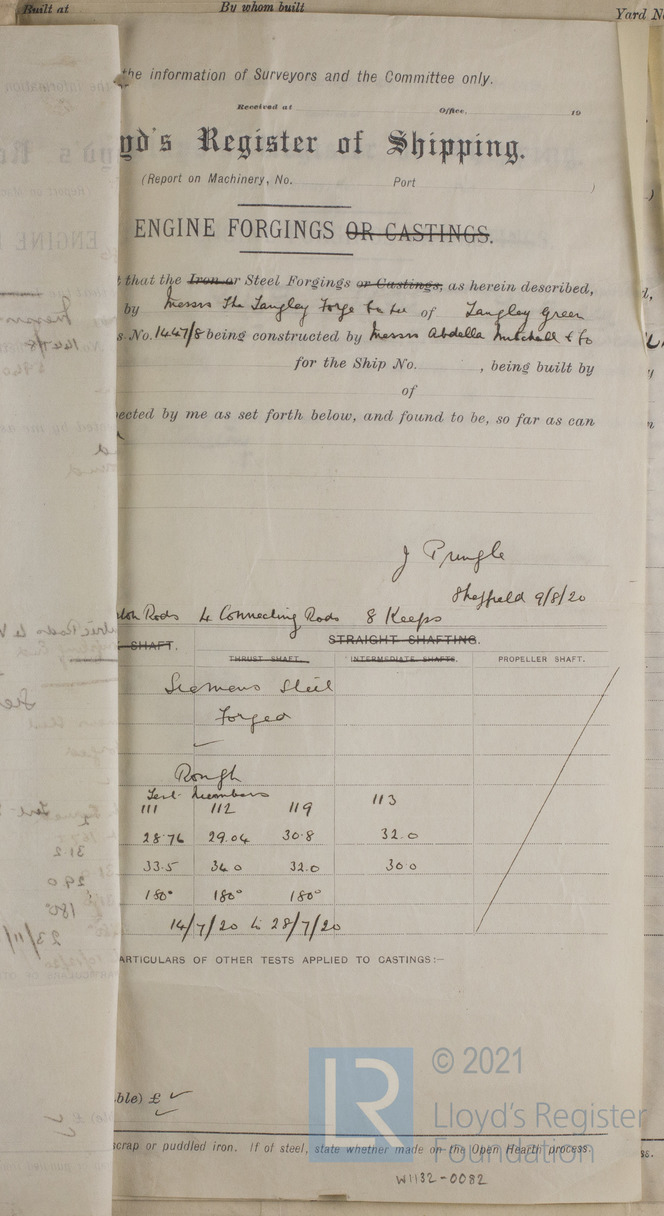 Built at By whom built Yard N
the information of Surveyors and the Committee only.
Received at Office, 19
yd's Register of Shipping.
(Report on Machinery, No. Port )
ENGINE FORGINGS OR CASTINGS.
that the Iron or Steel Forgings or Castings, as herein described,
by Messrs The Langley Forge Co Ld of Langley Green
s No. 1447/8 being constructed by Messrs Abdella Mitchell & Co
for the Ship No. , being built by
of
ected by me as set forth below, and found to be, so far as can
J Pringle
Sheffield 9/8/20
Rods 4 Connecting Rods 8 Keeps
SHAFT. STRAIGHT SHAFTING.
THRUST SHAFT. INTERMEDIATE SHAFTS. PROPELLER SHAFT.
Siemens Steel
Forged
Rough
Test Numbers
111 112 119 113
28.76 29.04 30.8 32.0
33.5 34.0 32.0 30.0
180° 180° 180°
14/7/20 to 28/7/20
ARTICULARS OF OTHER TESTS APPLIED TO CASTINGS:—
ble) £
scrap or puddled iron. If of steel, state whether made on the Open Hearth process.
LR
© 2021
Lloyd's Register
Foundation
W1132-0082